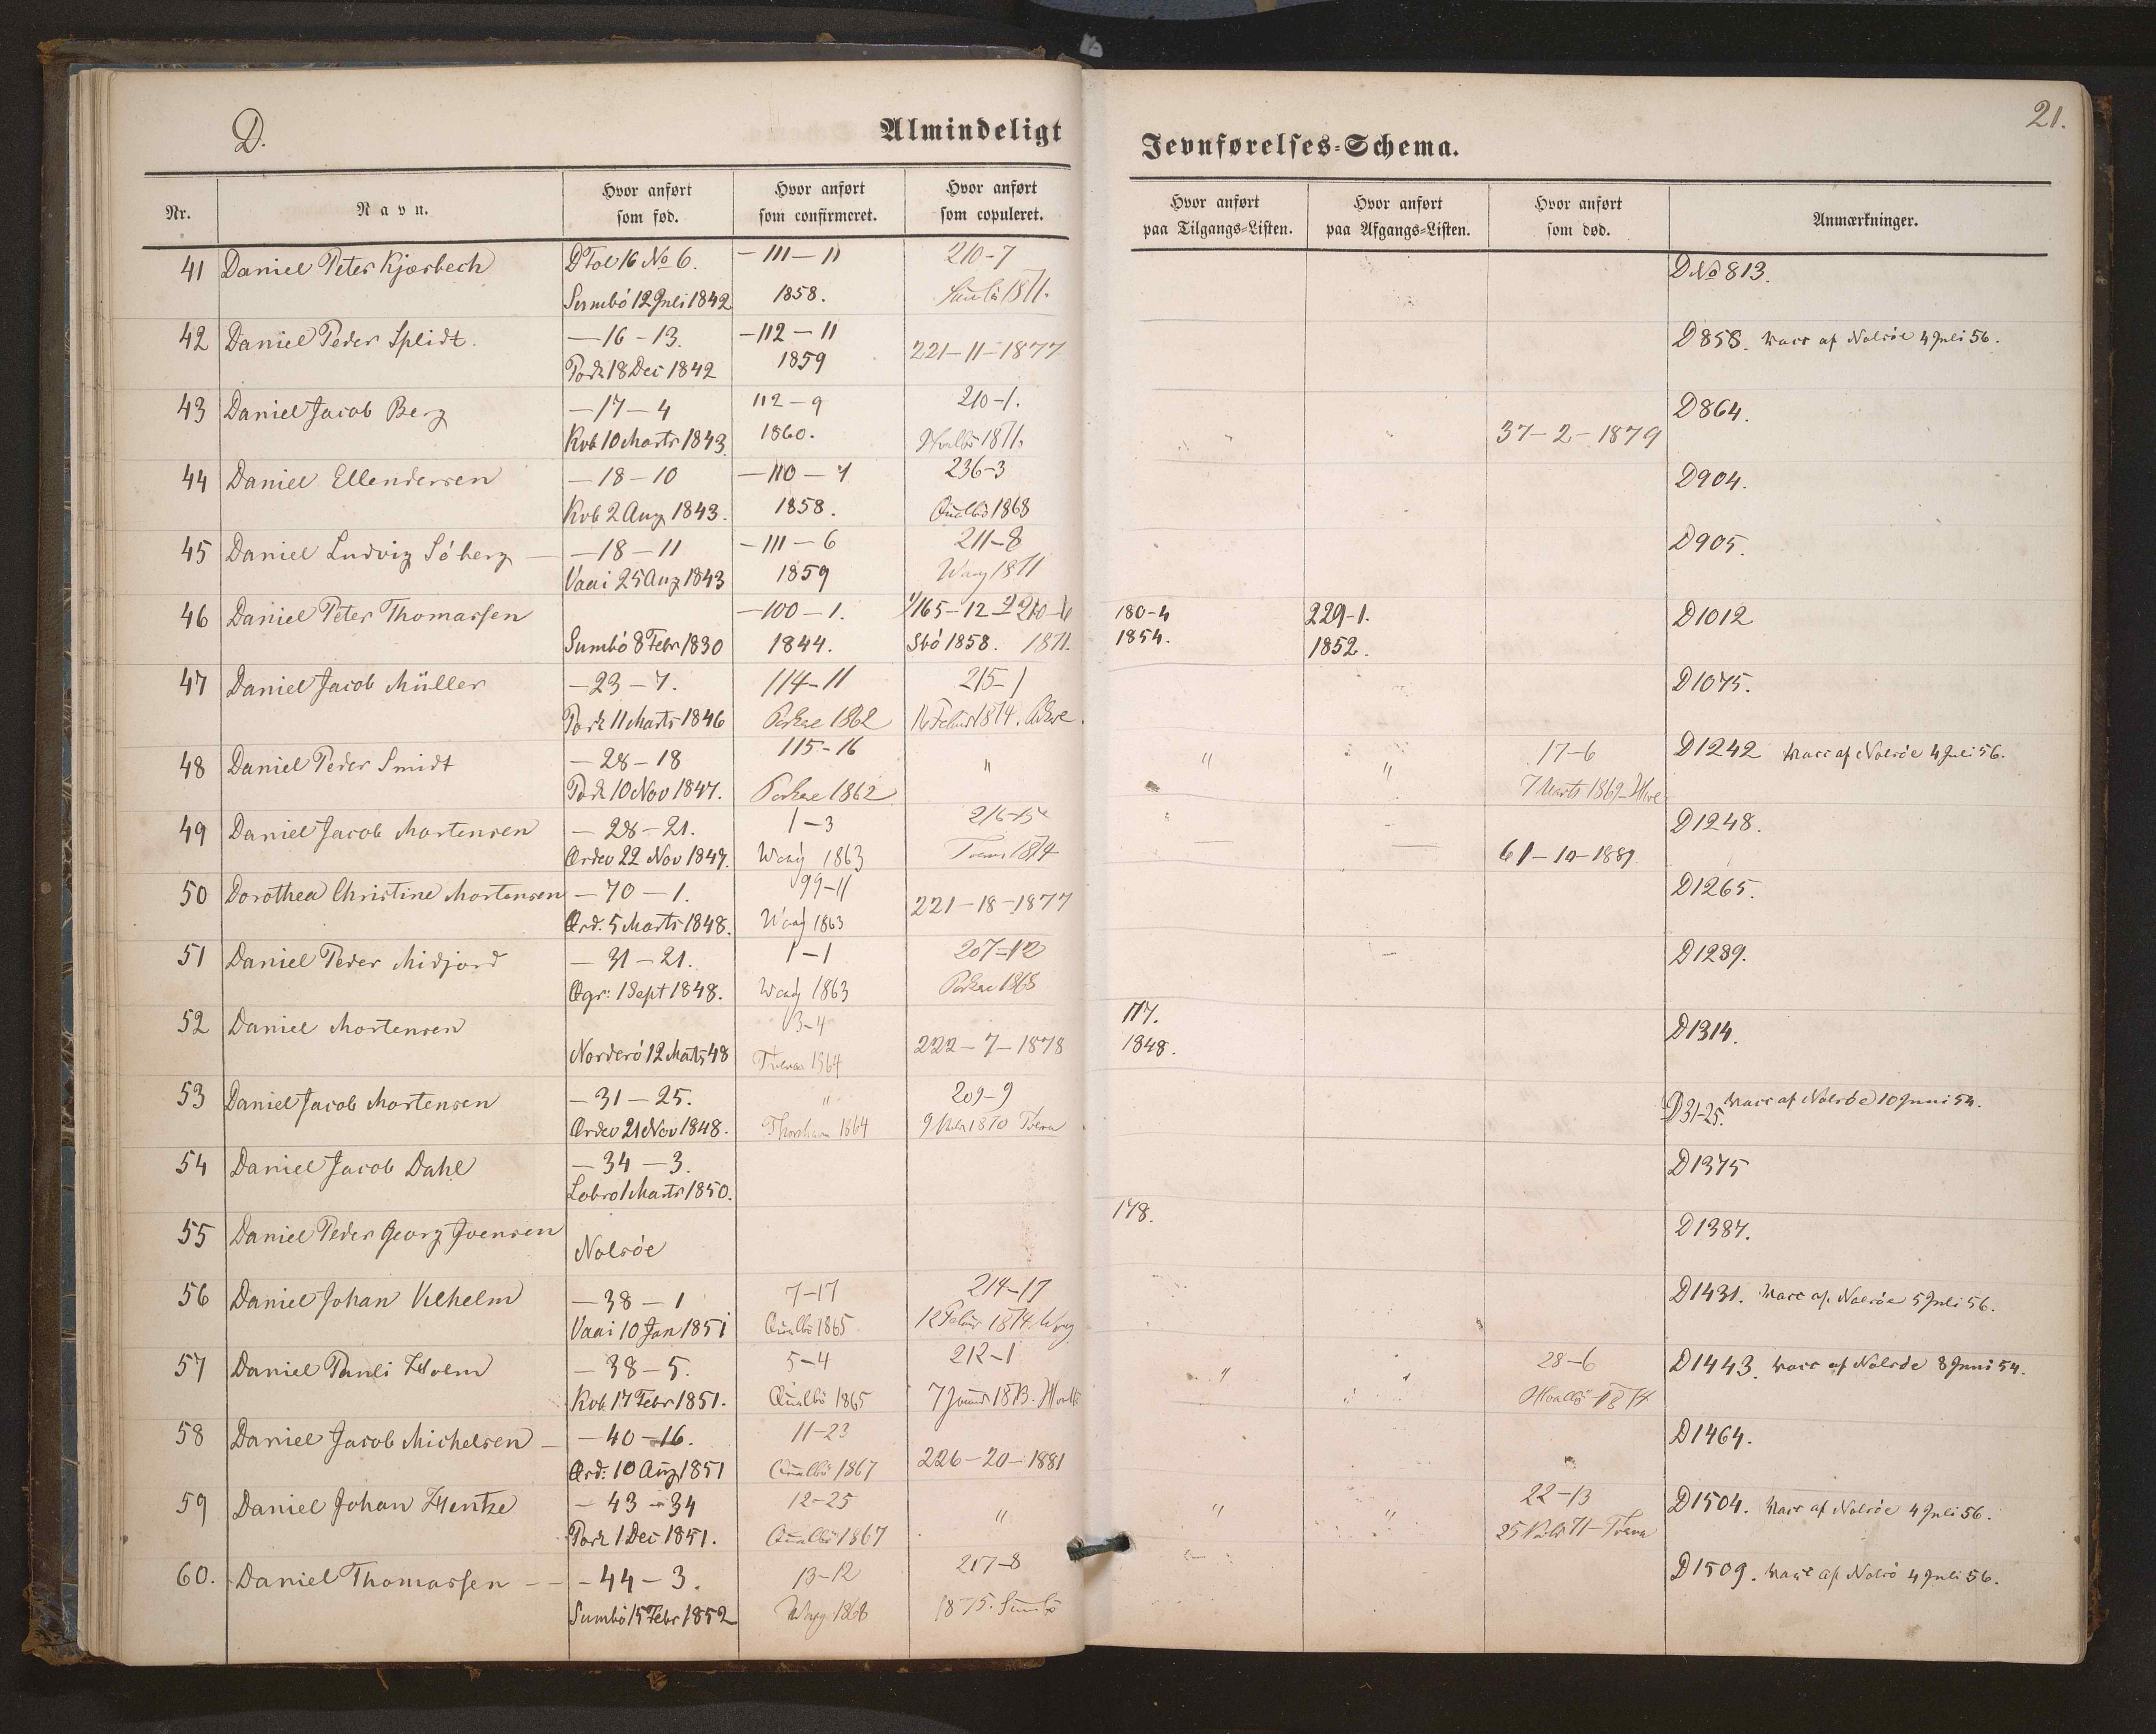 D.
Almindeligt Jevnførelses-Schema.
21.
Nr. Navn. Hvor anført som fød. Hvor anført som confirmeret. Hvor anført som copuleret. Hvor anført paa Tilgangs-Listen. Hvor anført paa Afgangs-Listen. Hvor anført som død. Anmærkninger.
41 Daniel Peter Kjærbech D Fol 16 No 6. — 111 — 11 210-7 D No 813.
Sumbö 12 Juli 1842 1858. 1871.
42 Daniel Peder Splidt. — 16 - 13. — 112 — 11 221-11-1877 D 858. Vacc af Nolsöe 4 Juli 56.
Pork 18 Dec 1842 1859
43 Daniel Jacob Berg — 17 — 4 112 - 9 210-1. D 864.
Kvb 10 Marts 1843 1860. 1871. 37-2-1879
44 Daniel Ellendersen — 18 - 10 — 110 — 7 236-3 D 904.
Kvb 2 Aug 1843. 1858. Qualbö 1868
45 Daniel Ludvig Söberg — — 18 — 11 — 111 — 6 211-8 D 905.
Vaai 25 Aug 1843 1859 Waag 1871
46 Daniel Peter Thomassen — 100 — 1. 165-12 210-6 180-4 229-1. D 1012
Sumbö 8 Febr 1830 1844. Sbö 1858. 1871. 1854. 1852.
47 Daniel Jacob Müller — 23 - 7. 114-11 215-1 D 1075.
Pork 11 Marts 1846 Porkere 1862 1874.
48 Daniel Peder Smidt — 28 - 18 115-16 " " " 17-6 D 1242 Vacc af Nolsöe 4 Juli 56.
Pork 10 Nov 1847. Porkere 1862 7 Marts 1869
49 Daniel Jacob Mortensen — 28 - 21. 1-3 216-15 D 1248.
Ordev 22 Nov 1847. Waag 1863 1874 61-10-1889
50 Dorothea Christine Mortensen — 70 — 1. 99-11 221-18-1877 D 1265.
Ord. 5 Marts 1848. Waag 1863
51 Daniel Peder Midjord — 31 - 21. 1-1 207-12 D 1289.
Øgr: 1 Sept 1848. Waag 1863 Porkere 1868
52 Daniel Mortensen 3-4 222-7-1878 177. D 1314.
Norderö 12 Marts 48 1864 1848.
53 Daniel Jacob Mortensen — 31 — 25. " 209-9 D 31-25. Vacc af Nolsöe 10 Juni 54.
Ordev 21 Nov 1848. Thorshavn 1864 1870 Tvera
54 Daniel Jacob Dahl — 34 — 3. D 1375
Lobro 1 Marts 1850.
55 Daniel Peder Georg Joensen Nolsöe 178. D 1387.
56 Daniel Johan Vilhelm — 38 - 1 7-17 214-17 D 1431. Vacc af Nolsöe 5 Juli 56.
Vaai 10 Jan 1851 Qualbö 1865 1874 Waag
57 Daniel Pauli Holm — 38 - 5. 5-4 212-1 " " 28-6 D 1443. Vacc af Nolsöe 8 Juni 54.
Kvb 17 Febr 1851. Qualbö 1865 1873. Hvalbö 1874
58 Daniel Jacob Michelsen — — 40 - 16. 11-23 226-20-1881 D 1464.
Ord: 10 Aug 1851 Qualbö 1867
59 Daniel Johan Hentze — 43 - 34 12-25 " " " 22-13 D 1504. Vacc af Nolsöe 4 Juli 56.
Pork 1 Dec 1851. Qualbö 1867 Tvera
60. Daniel Thomassen — - 44 - 3. 13-12 217-8 D 1509. Vacc af Nolsö 4 Juli 56.
Sumbö 15 Febr 1852 Waag 1868 1875. Sumbö